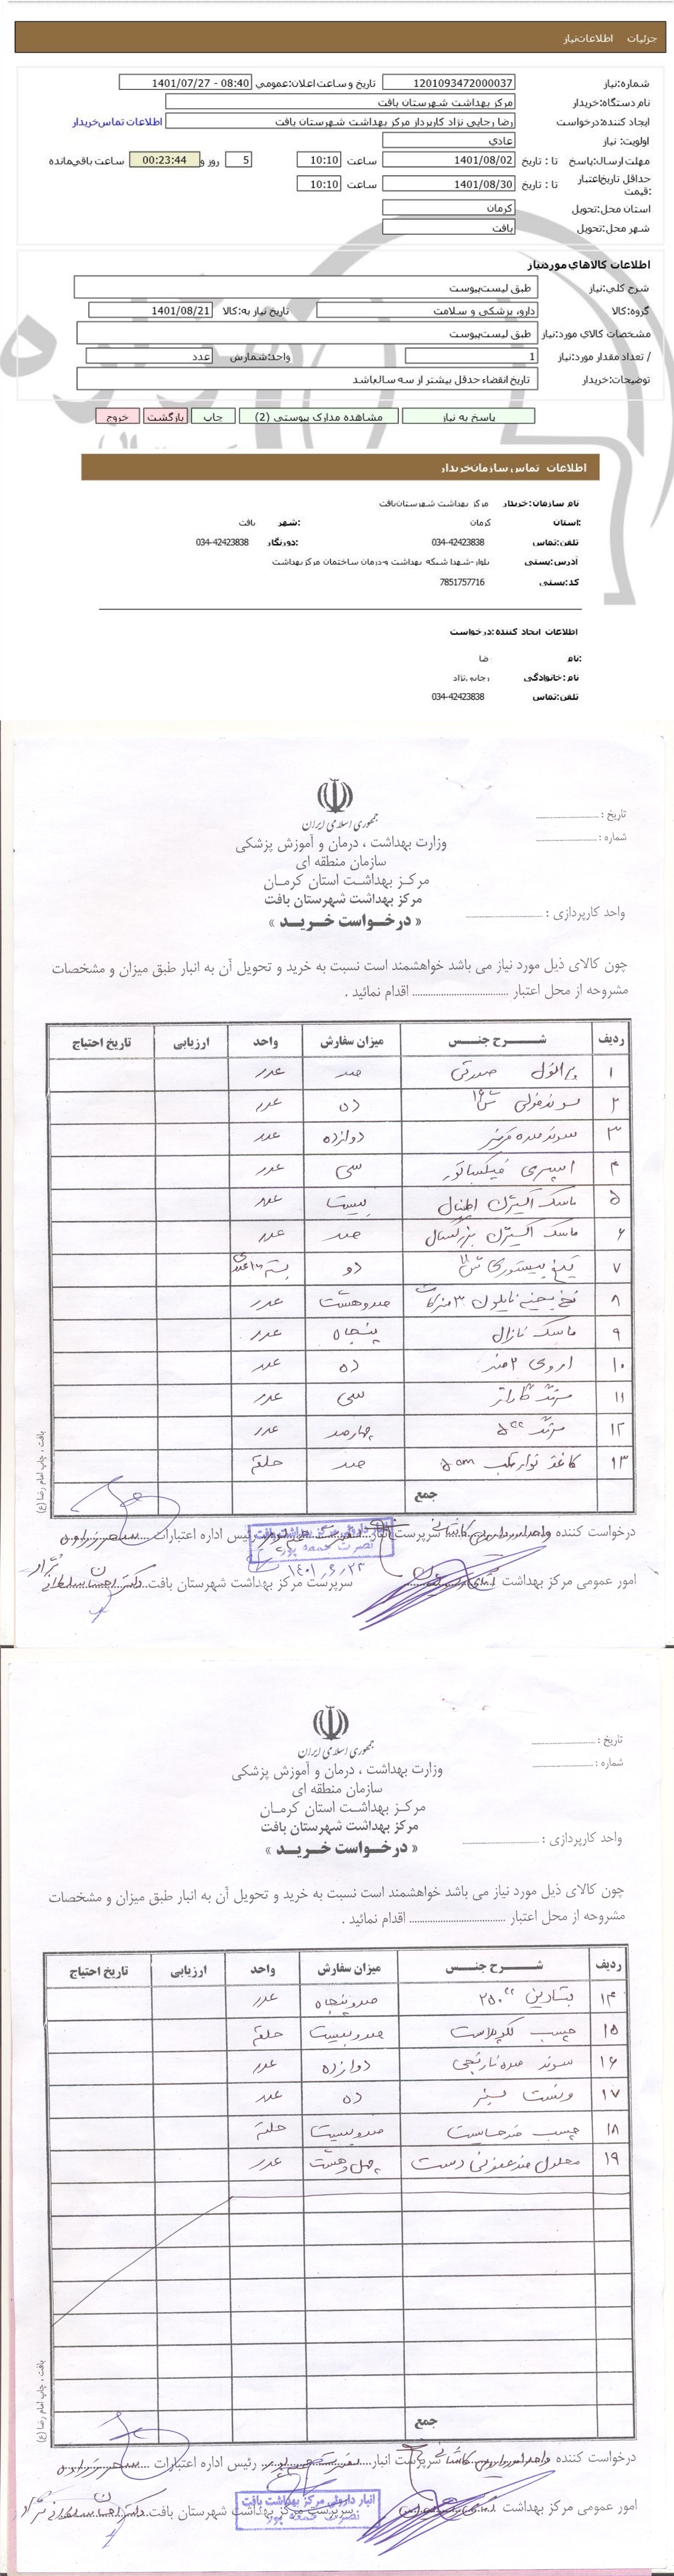 جزئیات اطلاعات‌نیاز
شماره:نیاز 1201093472000037 تاریخ و ساعت اعلان:عمومي 08:40 - 1401/07/27
نام دستگاه:خریدار مرکز بهداشت شهرستان بافت
ایجاد کننده:درخواست رضا رجایی نژاد کارپرداز مرکز بهداشت شهرستان بافت اطلاعات تماس‌خریدار
اولویت: نیاز عادي
مهلت ارسال:پاسخ تا : تاریخ 1401/08/02 ساعت 10:10 5 روز و 00:23:44 ساعت باقی‌مانده
حداقل تاریخ‌اعتبار :قیمت تا : تاریخ 1401/08/30 ساعت 10:10
استان محل:تحویل کرمان
شهر محل:تحویل بافت
اطلاعات کالاهاي موردنیاز
شرح کلي:نیاز طبق لیست‌پیوست
گروه:کالا دارو، پزشکی و سلامت تاریخ نیاز به:کالا 1401/08/21
مشخصات کالاي مورد:نیاز طبق لیست‌پیوست
/ تعداد مقدار مورد:نیاز 1 واحد:شمارش عدد
توضیحات:خریدار تاریخ انقضاء حدقل بیشتر از سه سال‌باشد
پاسخ به نیاز مشاهده مدارک پیوستی (2) چاپ بازگشت خروج
اطلاعات تماس سازمان‌خریدار
نام سازمان:خریدار مرکز بهداشت شهرستان‌بافت
:استان کرمان :شهر بافت
تلفن:تماس 034-42423838 :دورنگار 034-42423838
آدرس:پستی بلوار-شهدا شبکه بهداشت و-درمان ساختمان مرکزبهداشت
کد:پستی 7851757716
اطلاعات ایجاد کننده:درخواست
:نام رضا
نام:خانوادگی رجایی‌نژاد
تلفن:تماس 034-42423838
تاریخ :
شماره :
جمهوری اسلامی ایران
وزارت بهداشت ، درمان و آموزش پزشکی
سازمان منطقه ای
مرکـز بهداشـت استان کرمـان
مرکز بهداشت شهرستان بافت
« درخـواست خـریـد »
واحد کارپردازی :
چون کالای ذیل مورد نیاز می باشد خواهشمند است نسبت به خرید و تحویل آن به انبار طبق میزان و مشخصات
مشروحه از محل اعتبار ........ اقدام نمائید .
ردیف شـــرح جنــس میزان سفارش واحد ارزیابی تاریخ احتیاج
۱ صورتی صد عدد
۲ سوند فولی ده عدد
۳ سوند معده قرمز دوازده عدد
۴ اسپری فیکساتور سی عدد
۵ ماسک اکسیژن اطفال بیست عدد
۶ ماسک اکسیژن بزرگسال صد عدد
۷ تیغ بیستوری ش ۱۱ دو بسته
۸ نخ بخیه نایلون صدوهشت عدد
۹ ماسک نازال پنجاه عدد
۱۰ ده عدد
۱۱ سرنگ گاواژ سی عدد
۱۲ سرنگ ۵cc چهارصد عدد
۱۳ کاغذ نوار قلب ۵cm صد حلقه
جمع
بافت ، چاپ امام رضا (ع)
درخواست کننده سرپرست انبار رئیس اداره اعتبارات
انبار داروئی مرکز بهداشت بافت
نصرت جمعه پور
۱۴۰۱٫۶٫۲۲
امور عمومی مرکز بهداشت سرپرست مرکز بهداشت شهرستان بافت
تاریخ :
شماره :
جمهوری اسلامی ایران
وزارت بهداشت ، درمان و آموزش پزشکی
سازمان منطقه ای
مرکـز بهداشـت استان کرمـان
مرکز بهداشت شهرستان بافت
« درخـواست خـریـد »
واحد کارپردازی :
چون کالای ذیل مورد نیاز می باشد خواهشمند است نسبت به خرید و تحویل آن به انبار طبق میزان و مشخصات
مشروحه از محل اعتبار ........ اقدام نمائید .
ردیف شـــرح جنــس میزان سفارش واحد ارزیابی تاریخ احتیاج
۱۴ بتادین ۲۵۰cc صدوپنجاه عدد
۱۵ چسب لکوپلاست صدوبیست حلقه
۱۶ سوند معده نارنجی دوازده عدد
۱۷ سبز ده عدد
۱۸ چسب ضدحساسیت صدوبیست حلقه
۱۹ محلول ضدعفونی دست چهل وهشت عدد
جمع
بافت ، چاپ امام رضا (ع)
درخواست کننده سرپرست انبار رئیس اداره اعتبارات
انبار داروئی مرکز بهداشت بافت
نصرت جمعه پور
امور عمومی مرکز بهداشت سرپرست مرکز بهداشت شهرستان بافت